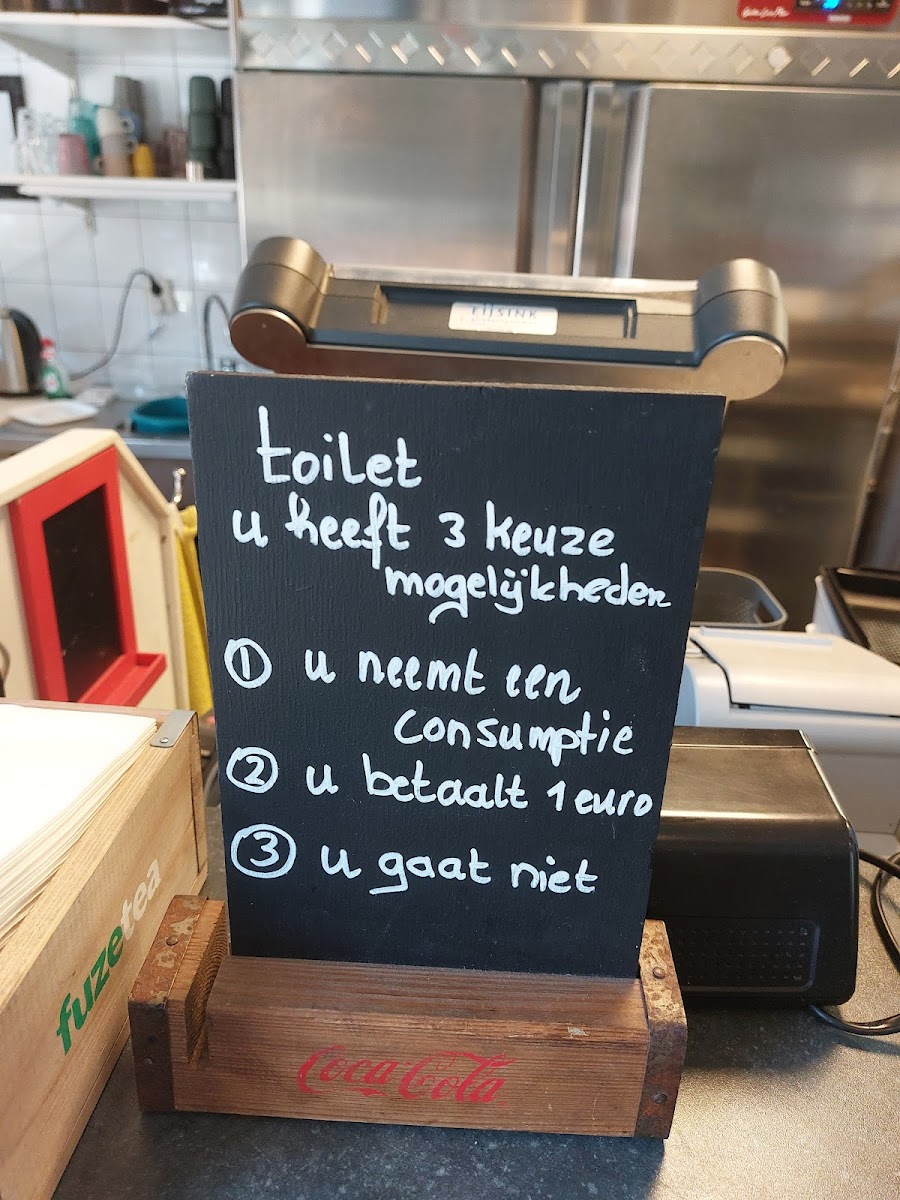 EIJSINK
toilet
u heeft 3 keuze
mogelijkheden
1 u neemt een
consumptie
2 u betaalt 1 euro
3 u gaat niet
fuzetea
Coca-Cola